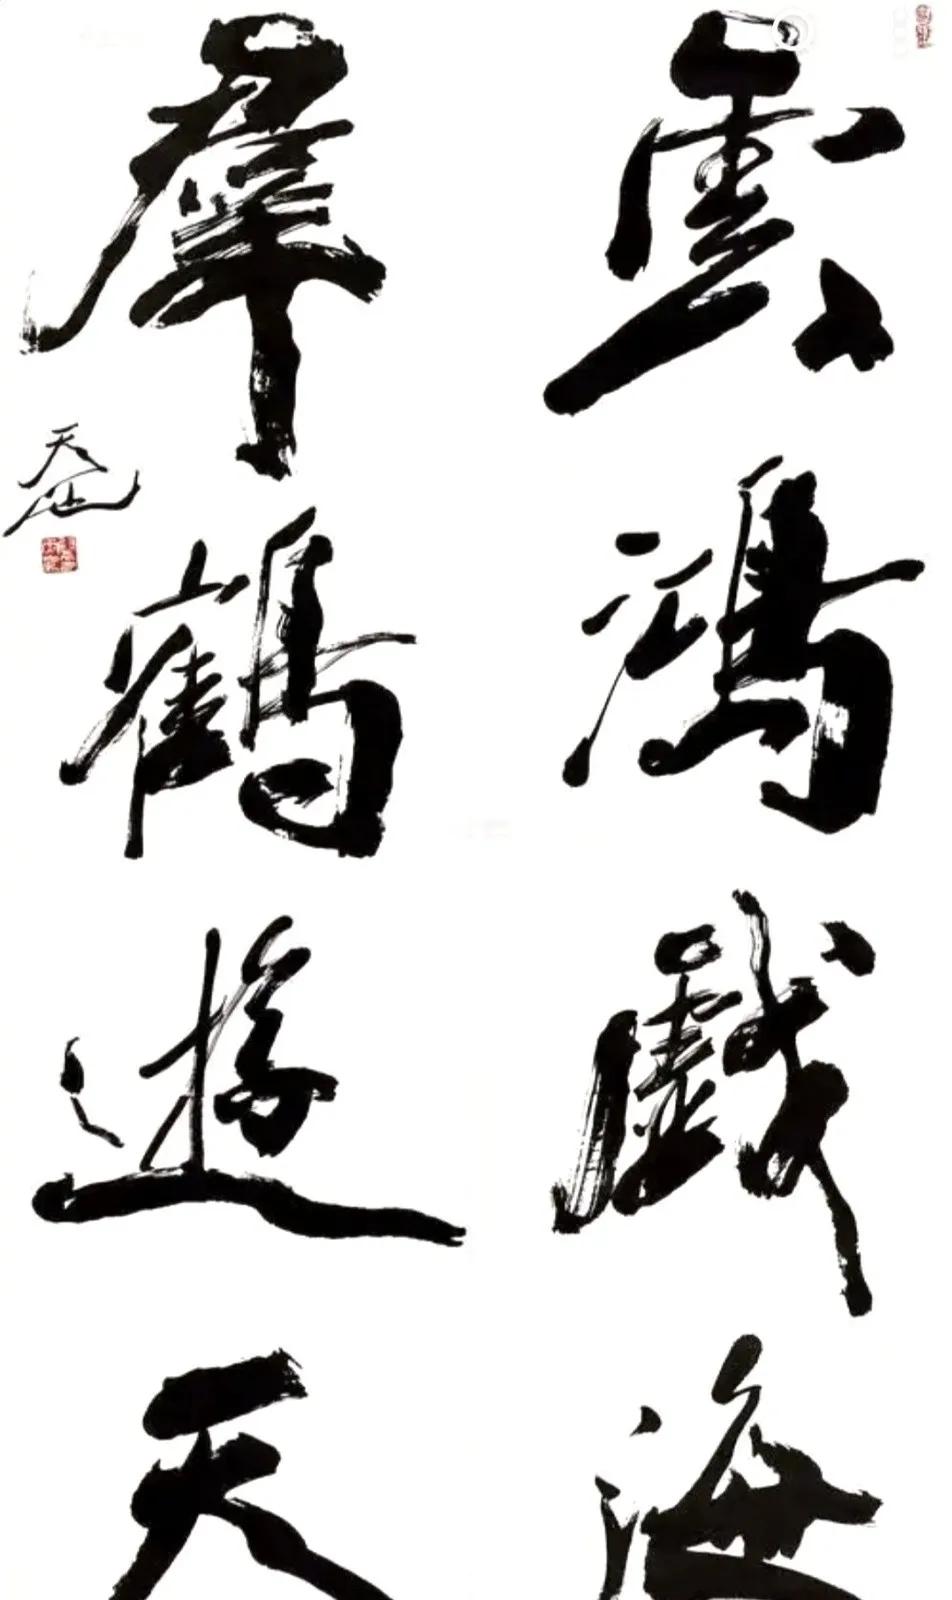 雲鴻戲海
羣鶴遊天
天